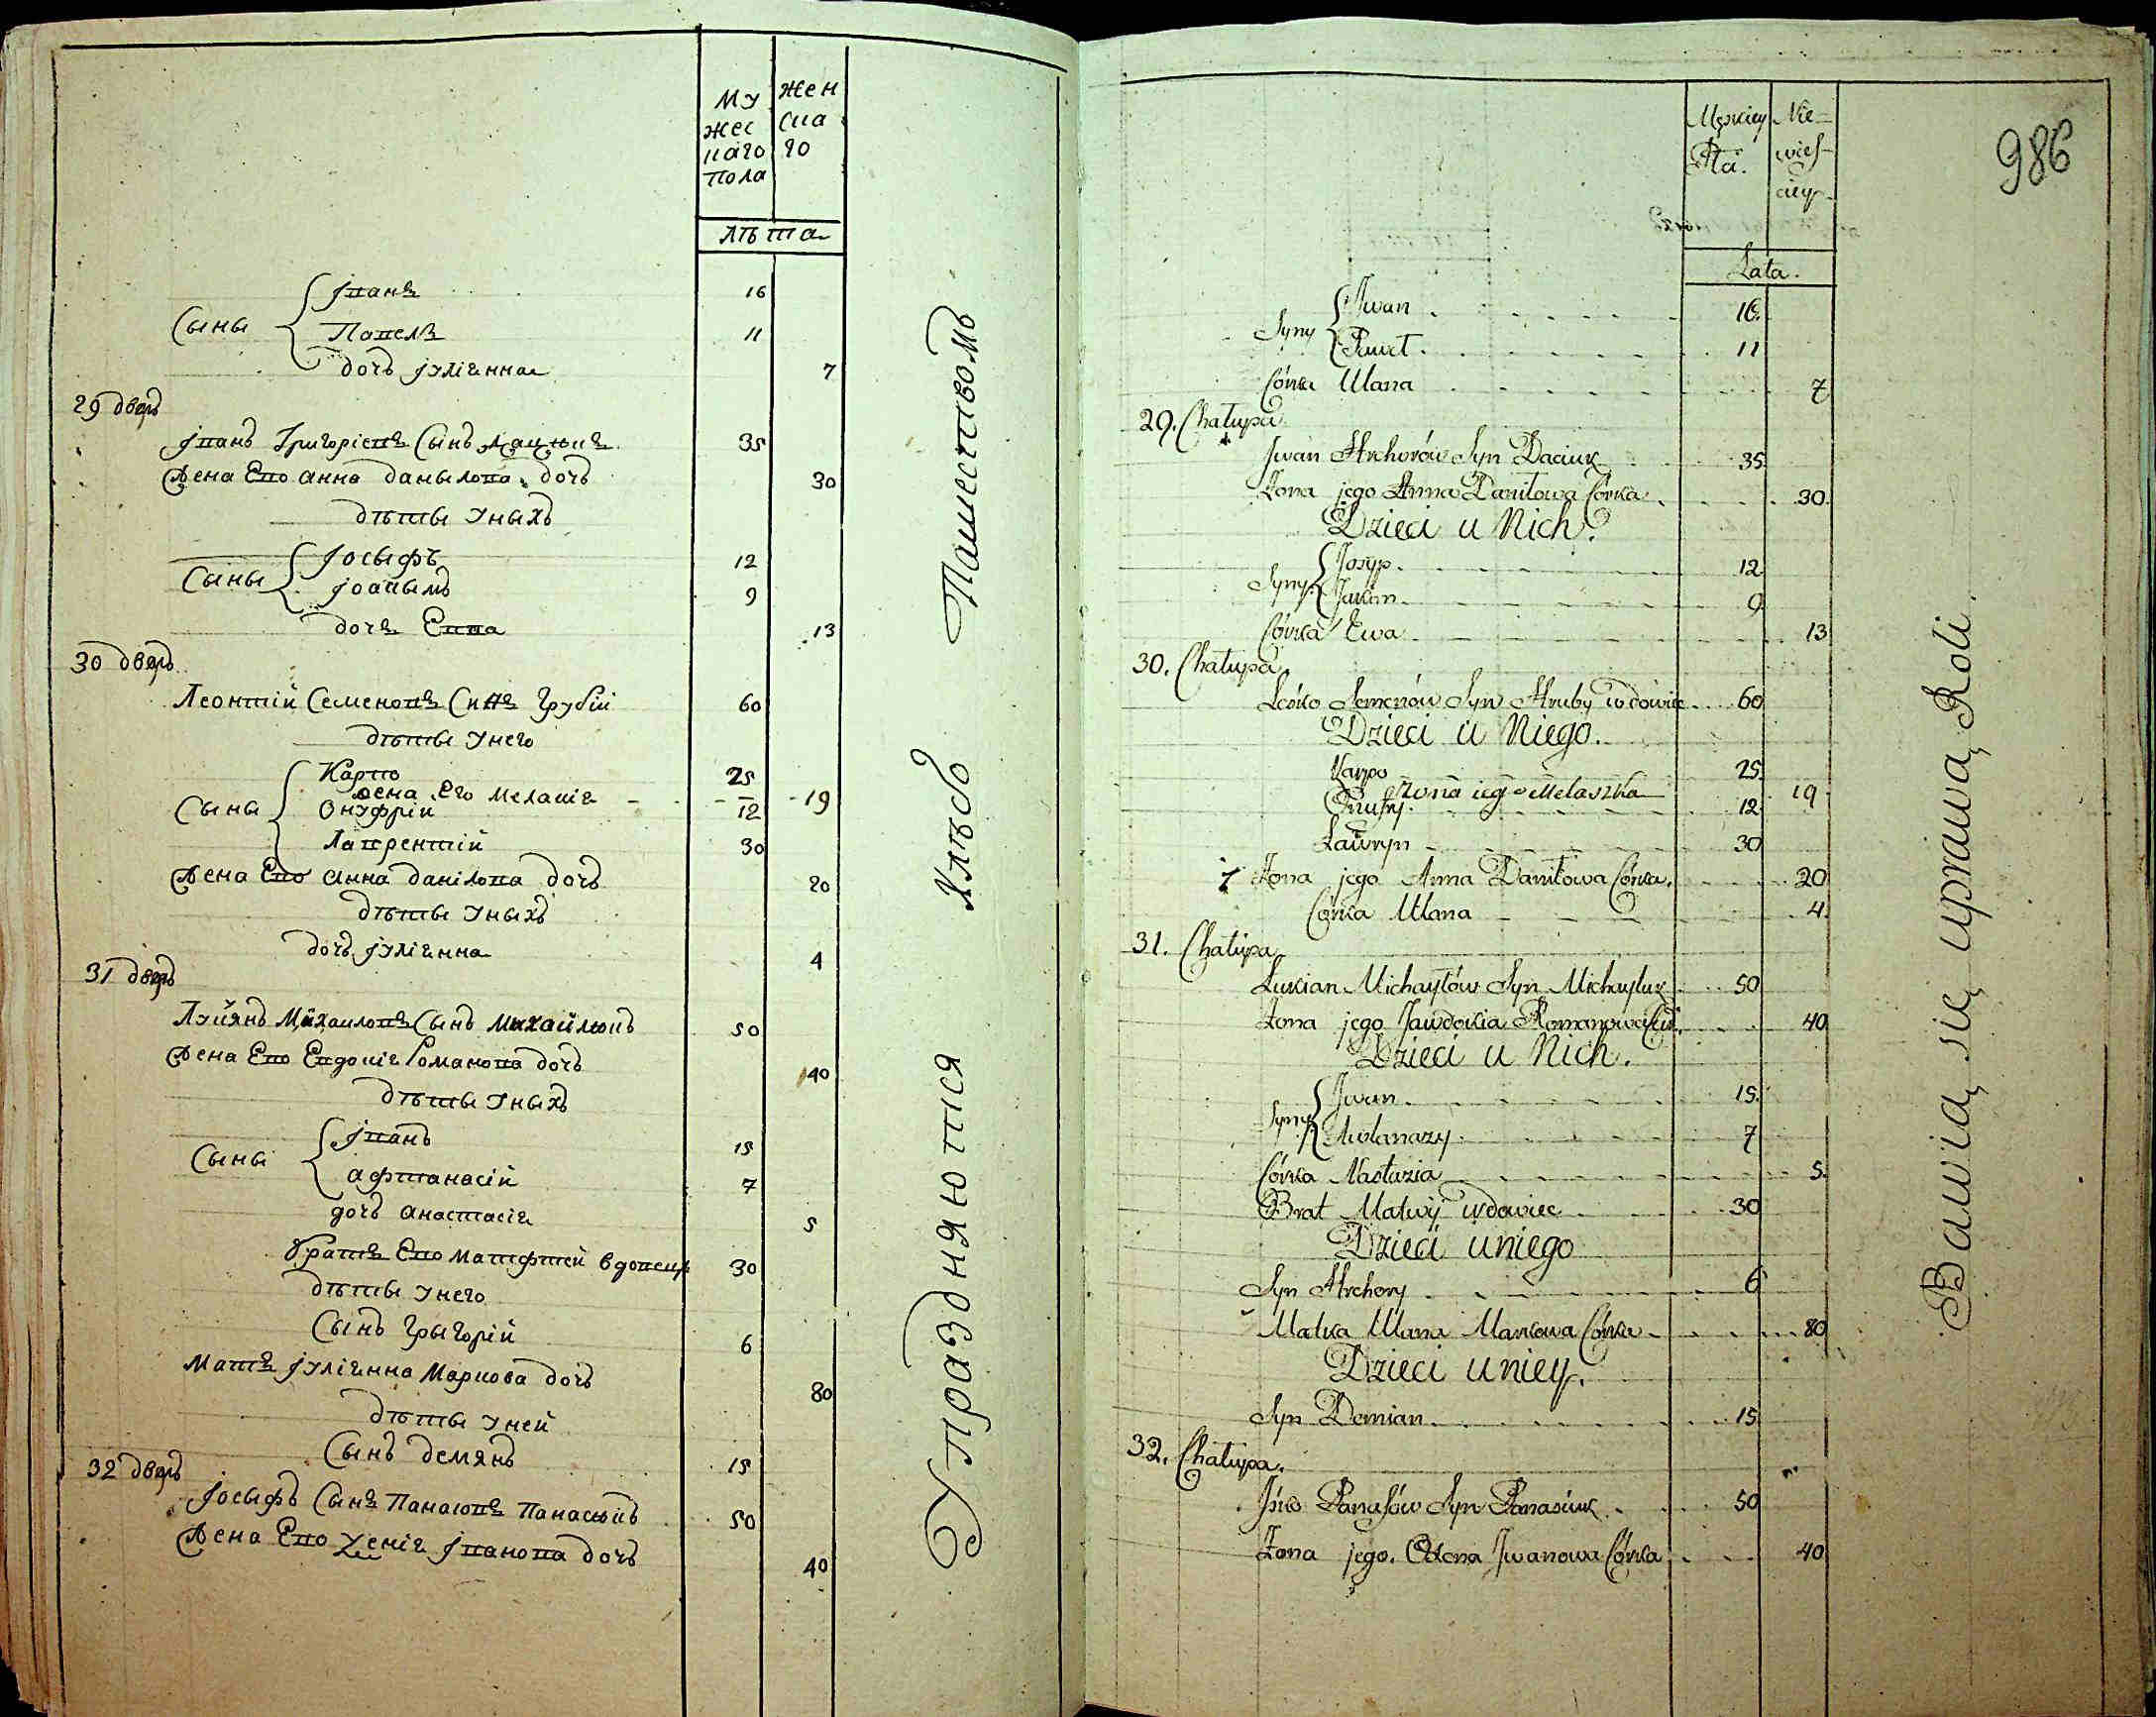 Му
жес
каго
пола
Жен
ска
го
лѣта
Сыны
Іванъ 16
Павелъ 11
дочь Іуліанна 7
29 дворъ
Іванъ Григоріевъ Сынъ Дацюкъ 35
Жена Его Анна Данылова дочь 30
дѣты Уныхъ
Сыны
Іосыфъ 12
Іоакымъ 9
дочь Евва 13
30 дворъ
Леонтій Семеновъ Синъ Грубій 60
дѣты Унего
Сыны
Карпо 25
Жена Его Меланія 19
Онуфрій 12
Лаврентій 30
Жена Его Анна Данілова дочь 20
дѣты Уныхъ
дочь Іуліанна 4
31 дворъ
Лукянъ Михаиловъ Сынъ Михайлюкъ 50
Жена Его Евдокія Романова дочь 40
дѣты Уныхъ
Сыны
Іванъ 15
Афтанасій 7
дочь Анастасія 5
братъ Его Матфтей вдовецъ 30
дѣты Унего
Сынъ Григорій 6
Мать Іуліанна Маркова дочь 80
дѣты Уней
Сынъ Демянъ 15
32 дворъ
Іосыфъ Сынъ Панасювъ Панасюкъ 50
Жена Его Іванова дочь 40
Упраздняются Хлѣбо Пашествомъ
986
Męzkiey
Płci.
Nie-
wies-
ciey.
Lata.
Syny
Iwan 16.
Pawet 11
Córka Ulana 7
29. Chałupa
Iwan Hrehorów Syn Daciuk 35
Żona jego Anna Daniłowa Córka 30.
Dzieci u Nich.
Syny
Josyp 12
Jakim 9
Córka Ewa 13
30. Chałupa
Lesko Semenów Syn Hruby wdowiec 60
Dzieci u Niego.
Karpo 25.
Żona iego Melaszka 19
Onufry 12
Lawryn 30
Żona jego Anna Daniłowa Córka. 20
Córka Ulana 4.
31. Chałupa
Lukian Michayłów Syn Michayluk 50
Żona jego Jawdokia Romanowa Cór. 40
Dzieci u Nich.
Syny
Iwan 15.
Awtanazy 7
Córka Nastazia 5.
Brat Matwij wdowiec 30
Dzieci uniego
Syn Hrehory 6
Matka Ulana Markowa Córka 80
Dzieci uniey.
Syn Demian 15
32. Chałupa.
Panasów Syn Panasiuk 50
Żona jego. Oxena Iwanowa Córka 40
Bawią się uprawą Roli.